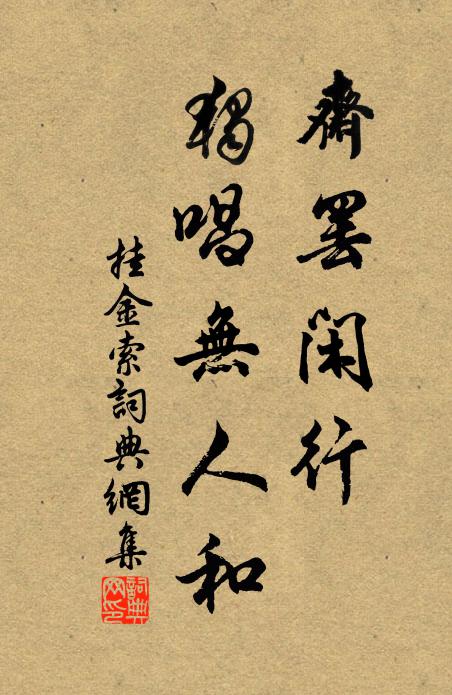 齋罷閑行
獨唱無人和
挂金索詞典網集
詞典
网印